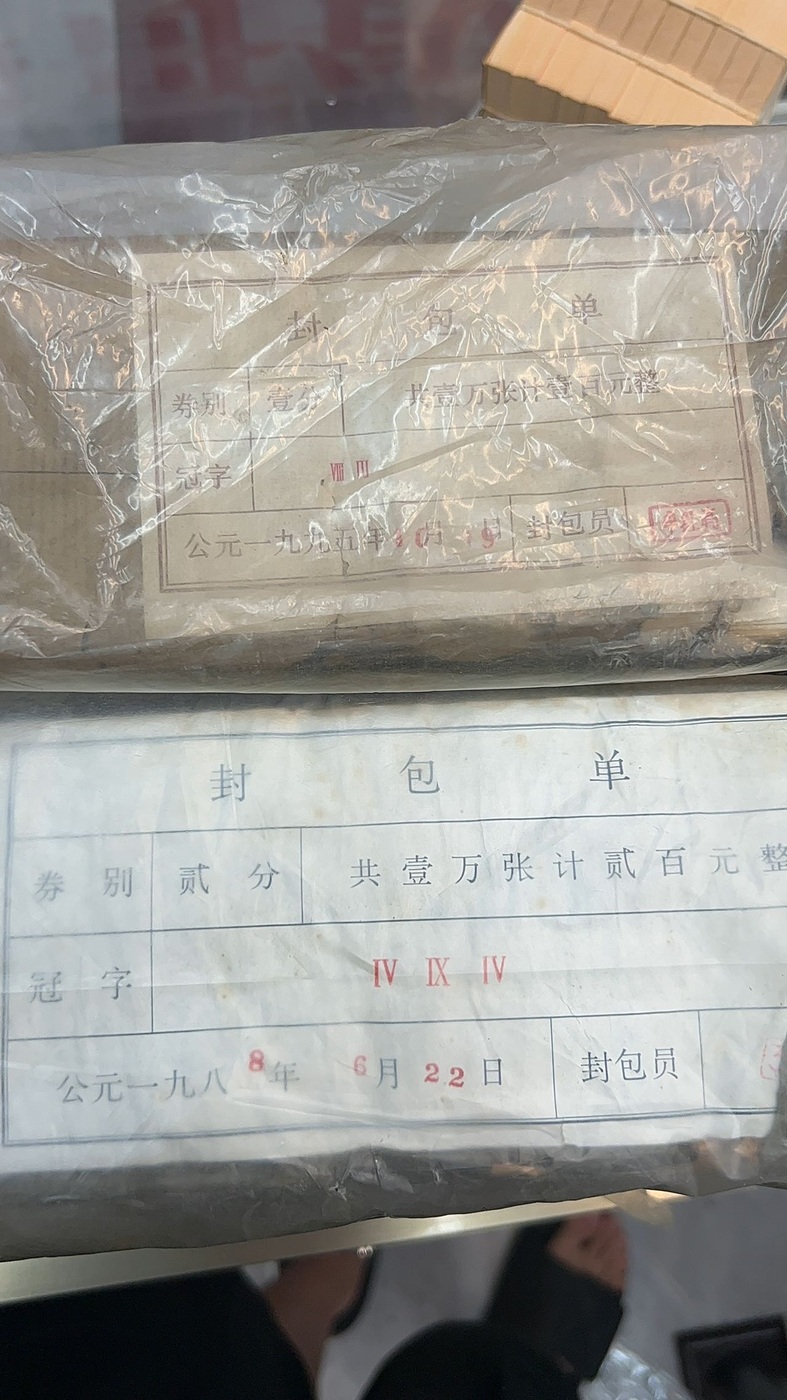 封 包 单
券别 壹分 共壹万张计壹百元整
冠字 Ⅷ Ⅲ
公元一九九五年10月19日 封包员
封 包 单
券 别 贰 分 共壹万张计贰百元整
冠 字 Ⅳ Ⅸ Ⅳ
公元一九八8年 6月22日 封包员